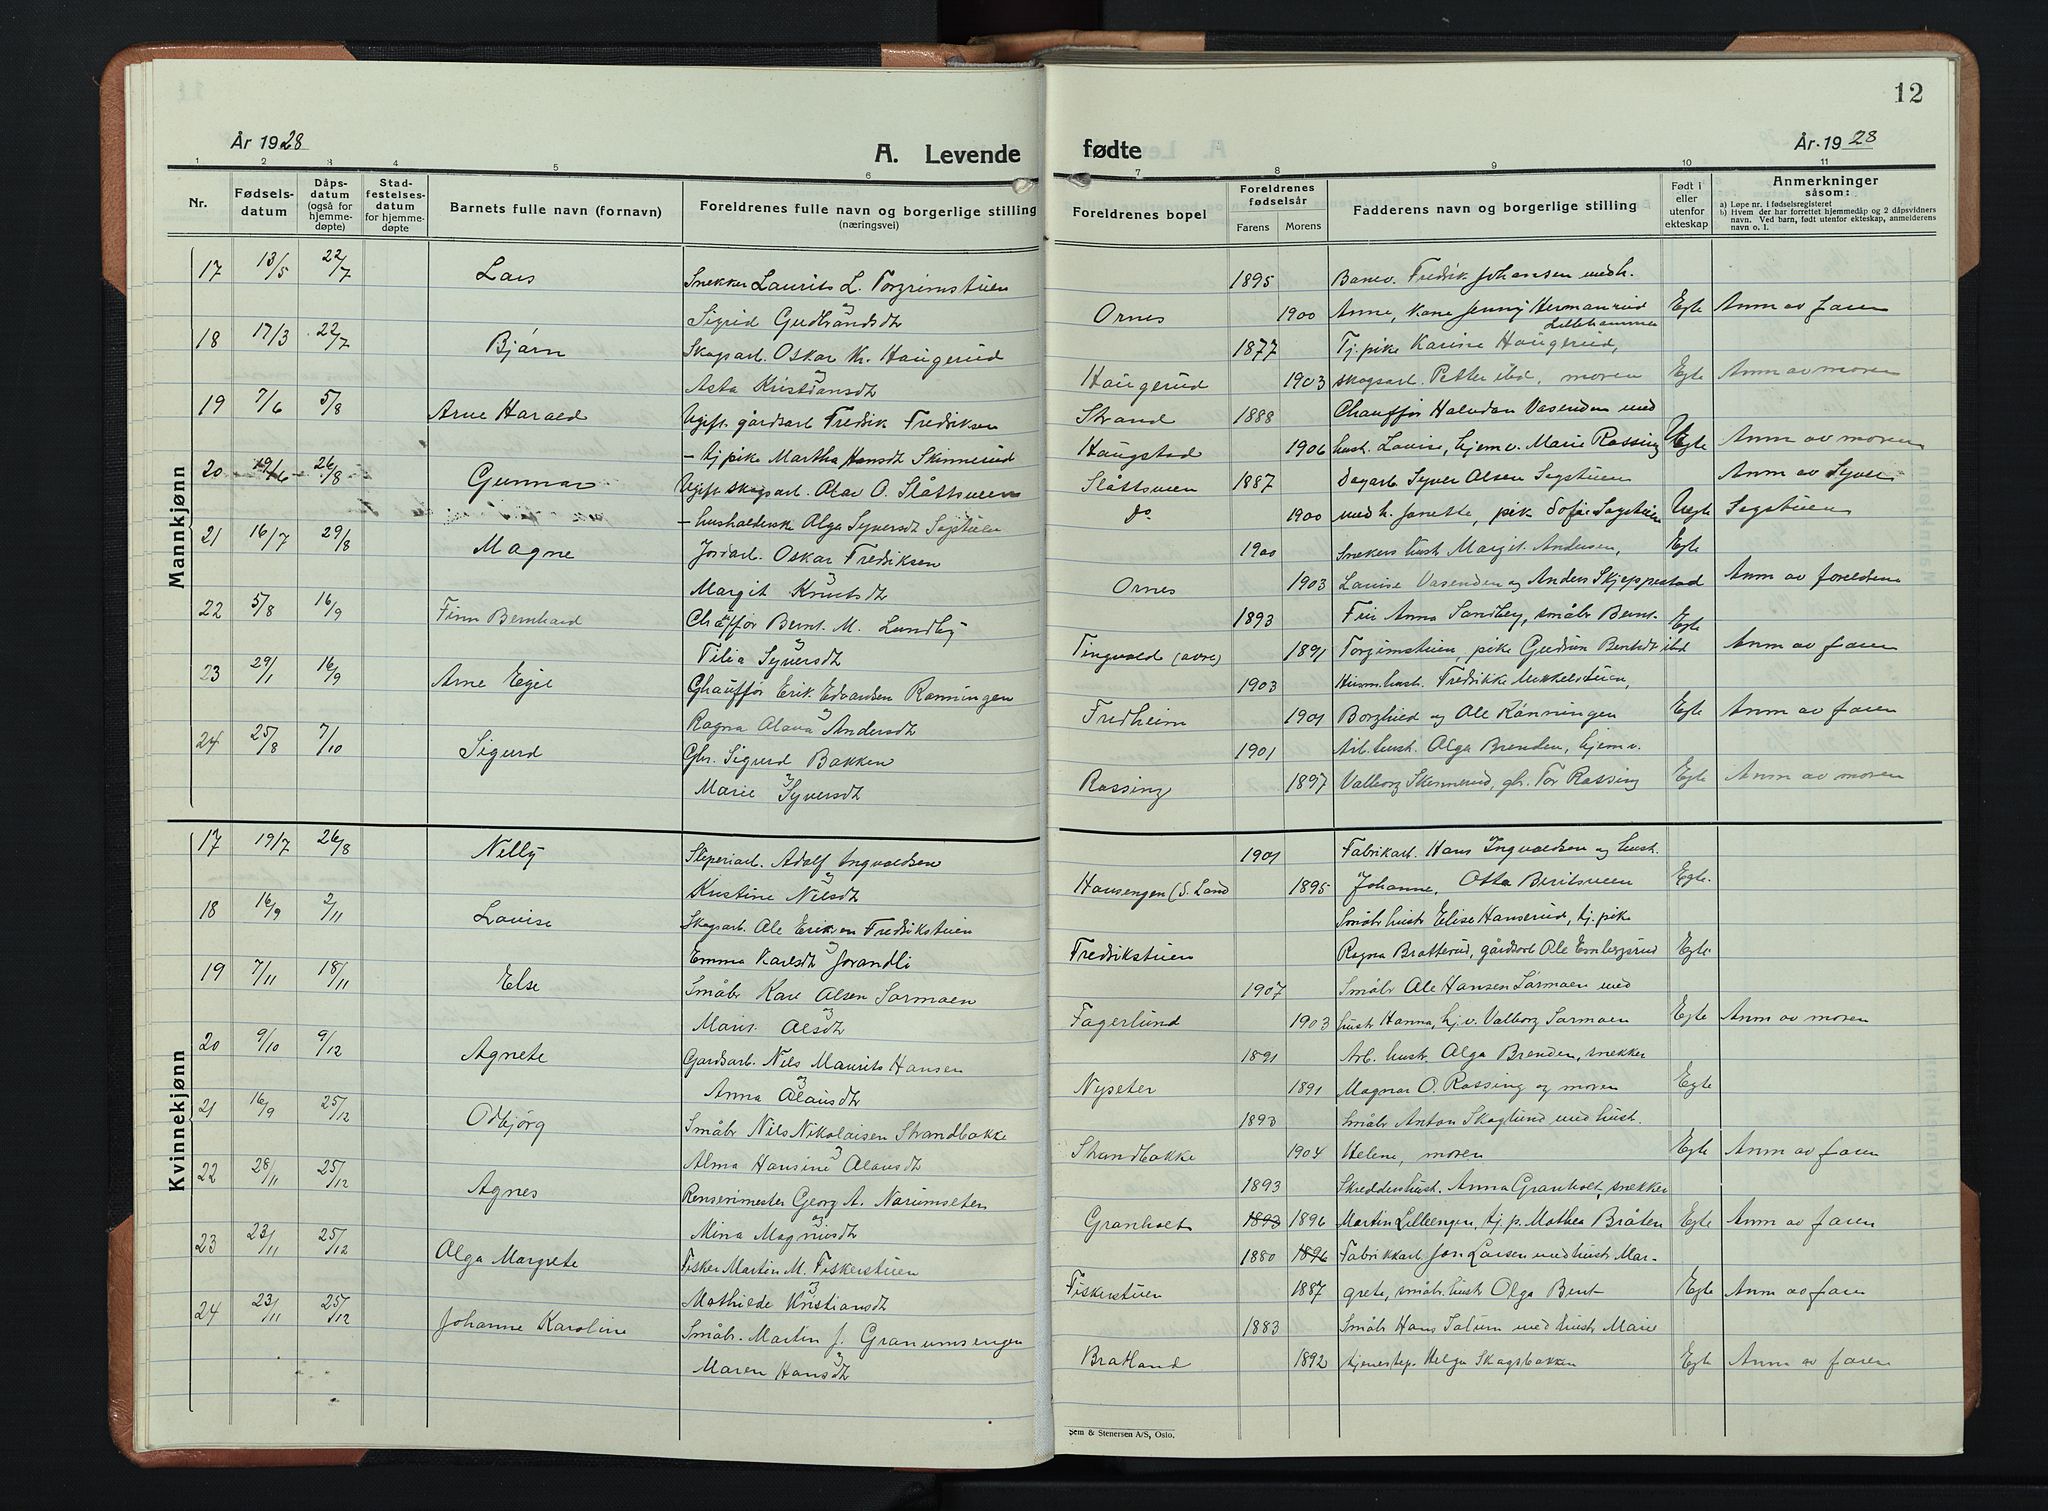 12
År 1928
A. Levende
fødte
År 1928
1 2 3 4 5 6 7 8 9 10 11
Nr. Fødselsdatum Dåpsdatum (også for hjemmedøpte) Stadfestelsesdatum for hjemmedøpte Barnets fulle navn (fornavn) Foreldrenes fulle navn og borgerlige stilling (næringsvei)
Foreldrenes bopel Foreldrenes fødselsår Farens Morens Fadderens navn og borgerlige stilling Født i eller utenfor ekteskap Anmerkninger såsom:
a) Løpe nr. i fødselsregisteret
b) Hvem der har forrettet hjemmedåp og 2 dåpsvidners navn. Ved barn, født utenfor ekteskap, anmelderens navn o. l.
Mannkjønn
17 13/5 22/7 Lars Snekker Laurits L. Torgrimstuen 1895 Banev. Fredrik Johansen med h.
og Sigrid Gudbrandsdt Ornes 1900 Anne, kone Jenny Hermanrud Egte Anm av faren
Lillehammer
18 17/3 22/7 Bjørn Skogsarb. Oskar Kr. Haugerud 1877 Tj. pike Karine Haugerud,
og Asta Kristiansdt Haugerud 1903 skogsarb. Petter ibd, moren Egte Anm av moren
19 7/6 5/8 Arne Harald Ugift gårdsarb Fredrik Fredriksen Strand 1888 Chauffør Halvdan Vasenden med
- tj pike Martha Hansdt Skinnerud Haugstad 1906 hust. Lovise, hjemv. Marie Røssing Uegte Anm av moren
20 19/6 26/8 Gunnar Ugift skogsarb. Olav O. Slåttsveen Slåttsveen 1887 Dagarb Syver Olsen Sagstuen Anm av Syver
- husholderske Olga Syversdt Sagstuen do 1900 med h. Janette, pik Sofie Sagstuen Uegte Sagstuen
21 16/7 29/8 Magne Jordarb. Oskar Fredriksen 1900 Snekers hust Margit Andersen, Egte
og Margit Knutsdt Ornes 1903 Lovise Vasenden og Anders Skjeppestad Anm av foreldrene
22 5/8 16/9 Finn Bernhard Chauffør Bernt M. Lundby 1893 Fru Anna Sandberg, småbr Bernt Egte
og Tilia Syversdt Tingvold (øvre) 1891 Torgimstuen, pike Gudrun Berntsdt ibd Anm av faren
23 29/1 16/9 Arne Egil Chauffør Erik Edvardsen Rønningen 1903 Husm.hust. Fredrikke Mikkelstuen,
og Ragna Olava Andersdt Fredheim 1901 Borghild og Ole Rønningen Egte Anm av faren
24 25/8 7/10 Sigurd Gbr. Sigurd Bakken 1901 Arb.hust. Olga Brenden, hjemv.
og Marie Syversdt Røssing 1897 Valborg Skinnerud, gbr. Tor Røssing Egte Anm av moren
Kvinnekjønn
17 19/7 26/8 Nelly Sliperiarb. Adolf Ingvaldsen 1901 Fabrikarb. Hans Ingvaldsen og hust.
og Kristine Nilsdt Hansengen (S. Land 1895 Johanne, Otta Beritsveen Egte.
18 16/9 2/11 Lovise Skogsarb. Ole Eriksen Fredrikstuen Småbr hust Elise Hanserud, tj. pike
og Emma Karlsdt Jorandli Fredrikstuen Ragna Bratterud, gårdsarb Ole Embergsrud Egte.
19 7/11 18/11 Else Småbr Kare Olsen Sørmoen 1907 Småbr Ole Hansen Sørmoen med
og Marie Olsdt Fagerlund 1903 hust Hanna, hj.v. Valborg Sørmoen Egte Anm av moren
20 9/10 9/12 Agnete Gardsarb. Nils Maurits Hansen 1891 Arb. hust. Olga Brenden, snekker
og Anna Olausdt Nyseter 1891 Magnar O. Røssing og moren Egte
21 16/9 25/12 Odbjørg Småbr Nils Nikolaisen Strandbakke 1893 Småbr Anton Skoglund med hust.
og Alma Hansine Olausdt Strandbakke 1904 Helene, moren Egte Anm av faren
22 28/11 25/12 Agnes Renserimester Georg A. Narumseter 1893 Skredderhust. Anna Granholt, snekker
og Mina Magnusdt Granholt 1893 1896 Martin Lilleengen, tj. p. Mathea Bråten Egte Anm av faren
23 23/11 25/12 Olga Margrete Fisker Martin M. Fiskerstuen 1880 1896 Fabrikkarb. Jon Larsen med hust Mar-
og Mathilde Kristiansdt Fiskerstuen 1887 grete, småbr.hust Olga Bent Egte Anm av faren
24 23/11 25/12 Johanne Karoline Småbr. Martin J. Granumsengen 1883 Småbr Hans Solum med hust Marie
og Maren Hansdt Bratland 1892 tjenestep. Helga Skogsbakken Egte Anm av faren
Sem & Stenersen A/S, Oslo.